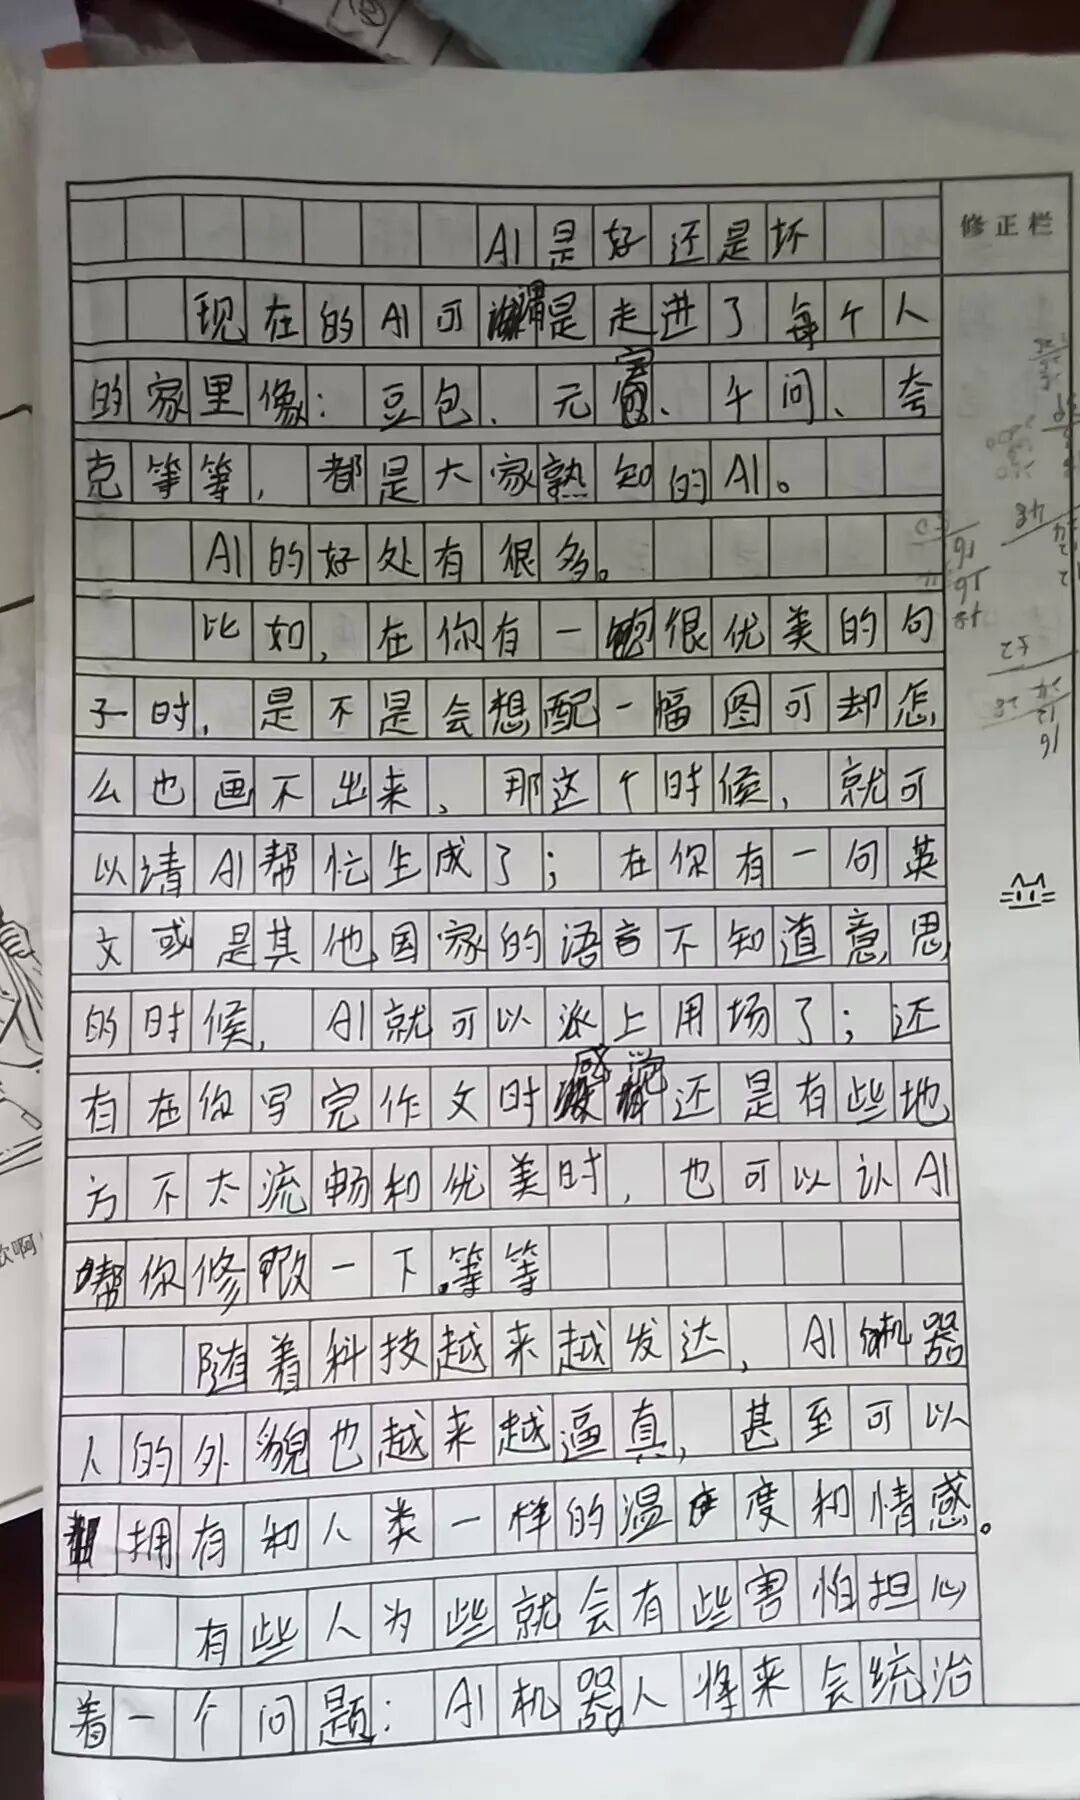 AI是好还是坏
修正栏
现在的AI可谓是走进了每个人
的家里像：豆包、元宝、千问、夸
克等等，都是大家熟知的AI。
AI的好处有很多。
比如，在你有一句很优美的句
子时，是不是会想配一幅图可却怎
么也画不出来，那这个时候，就可
以请AI帮忙生成了；在你有一句英
文或是其他国家的语言不知道意思
的时候，AI就可以派上用场了；还
有在你写完作文时感觉还是有些地
方不太流畅和优美时，也可以认AI
帮你修改一下。等等
随着科技越来越发达，AI机器
人的外貌也越来越逼真，甚至可以
拥有和人类一样的温度和情感。
有些人为些就会有些害怕担心
着一个问题：AI机器人将来会统治